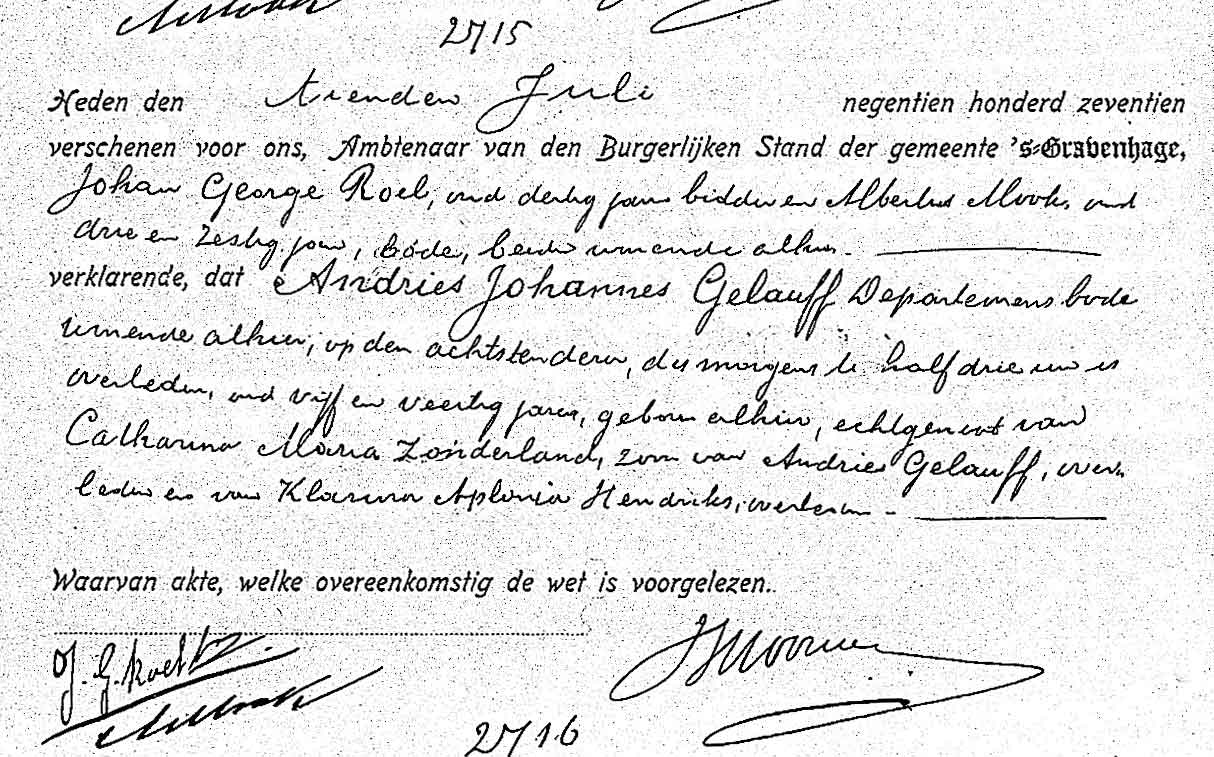 2715
Heden den tienden Juli negentien honderd zeventien
verschenen voor ons, Ambtenaar van den Burgerlijken Stand der gemeente 's-Gravenhage,
Johan George Roel, oud dertig jaren bidder en Albertus Mook, oud
drie en zestig jaren, bode, beide wonende alhier.
verklarende, dat Andries Johannes Gelauff Departemensbode
wonende alhier, op den achtsten dezer, des morgens te half drie ure is
overleden, oud vijf en veertig jaren, geboren alhier, echtgenoot van
Catharina Maria Zonderland, zoon van Andries Gelauff, over-
leden en van Klasina Aplonia Hendriks, overleden -
Waarvan akte, welke overeenkomstig de wet is voorgelezen.
J. G. Roel
AMook
2716